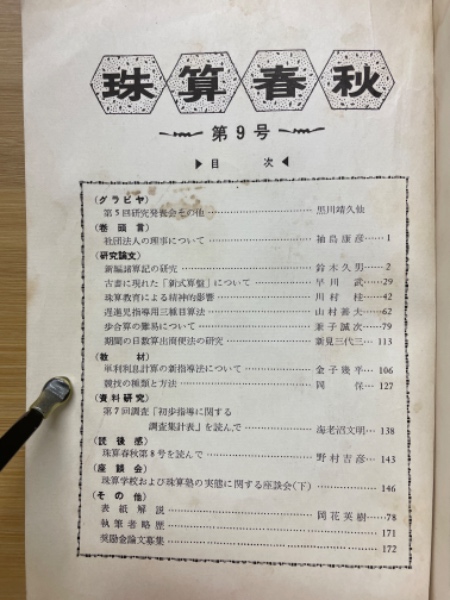 珠算春秋
第9号
▶目　次◀
(グラビヤ)
第5回研究発表会その他……黒川靖久他
(巻頭言)
社団法人の理事について……袖島康彦……1
(研究論文)
新編諸算記の研究……鈴木久男……2
古書に現れた「新式算盤」について……早川　武……29
珠算教育による精神的影響……川村　桂……42
遅進児指導用三種目算法……山村善夫……62
歩合算の難易について……兼子誠次……79
期間の日数算出商便法の研究……新見三代三…113
(教　材)
単利利息計算の新指導法について……金子幾平…106
競技の種類と方法……岡　保…127
(資料研究)
第7回調査「初歩指導に関する
調査集計表」を読んで……海老沼文明…138
(読後感)
珠算春秋第8号を読んで……野村吉彦…143
(座談会)
珠算学校および珠算塾の実態に関する座談会(下)……146
(その他)
表紙解説……岡花英樹……78
執筆者略歴……171
奨励金論文募集……172